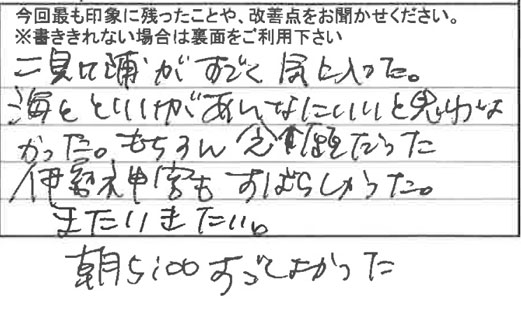 今回最も印象に残ったことや、改善点をお聞かせください。
※書ききれない場合は裏面をご利用下さい
二見口浦がすごく気に入った。
海と といけがあんなにいいと思わな
かった。もちろん 念願だった
伊勢神宮も すばらしかった。
またいきたい。
朝5:00すごくよかった